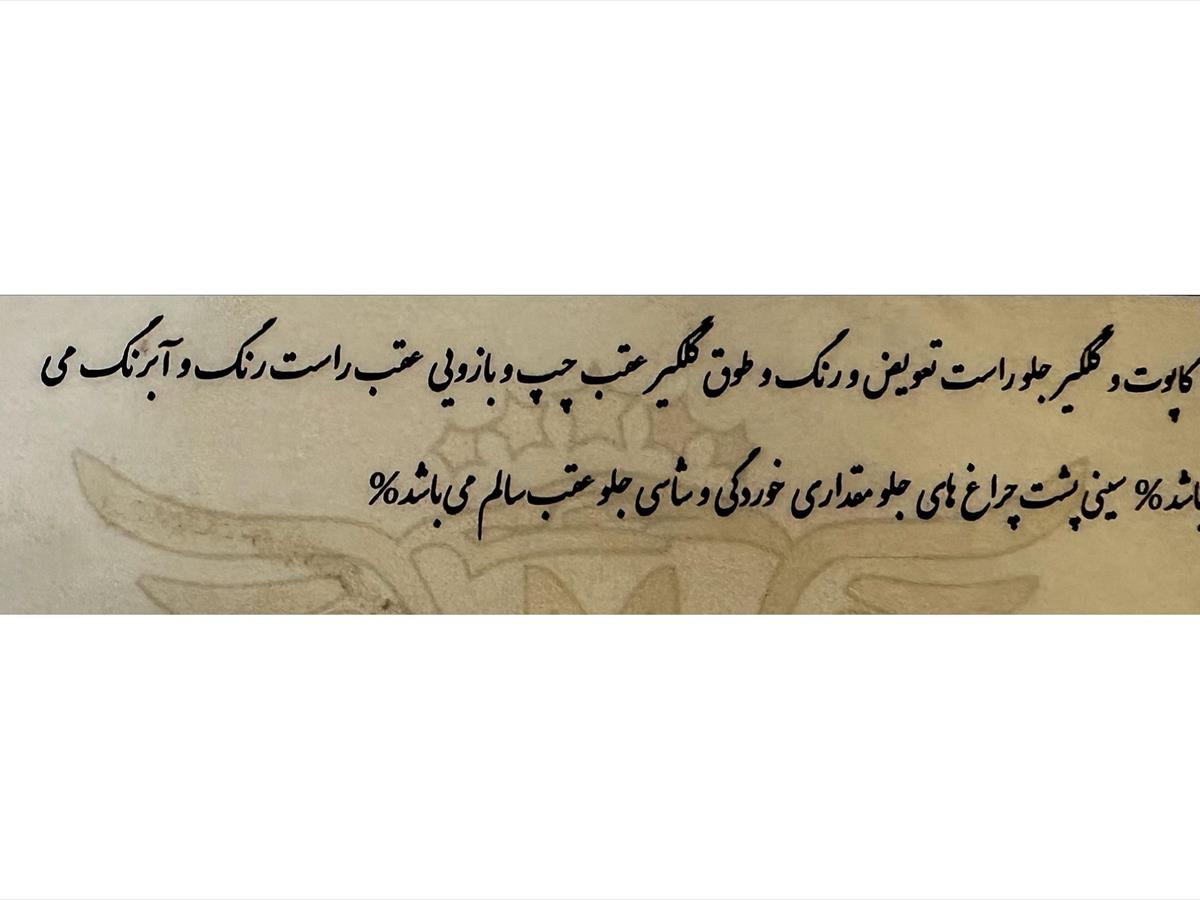 کاپوت و گلگیر جلو راست تعویض و رنگ و طوق گلگیر عقب چپ و بازویی عقب راست رنگ و آبرنگ می
باشد% سینی پشت چراغ های جلو مقداری خوردگی و شاسی جلو عقب سالم می باشد%